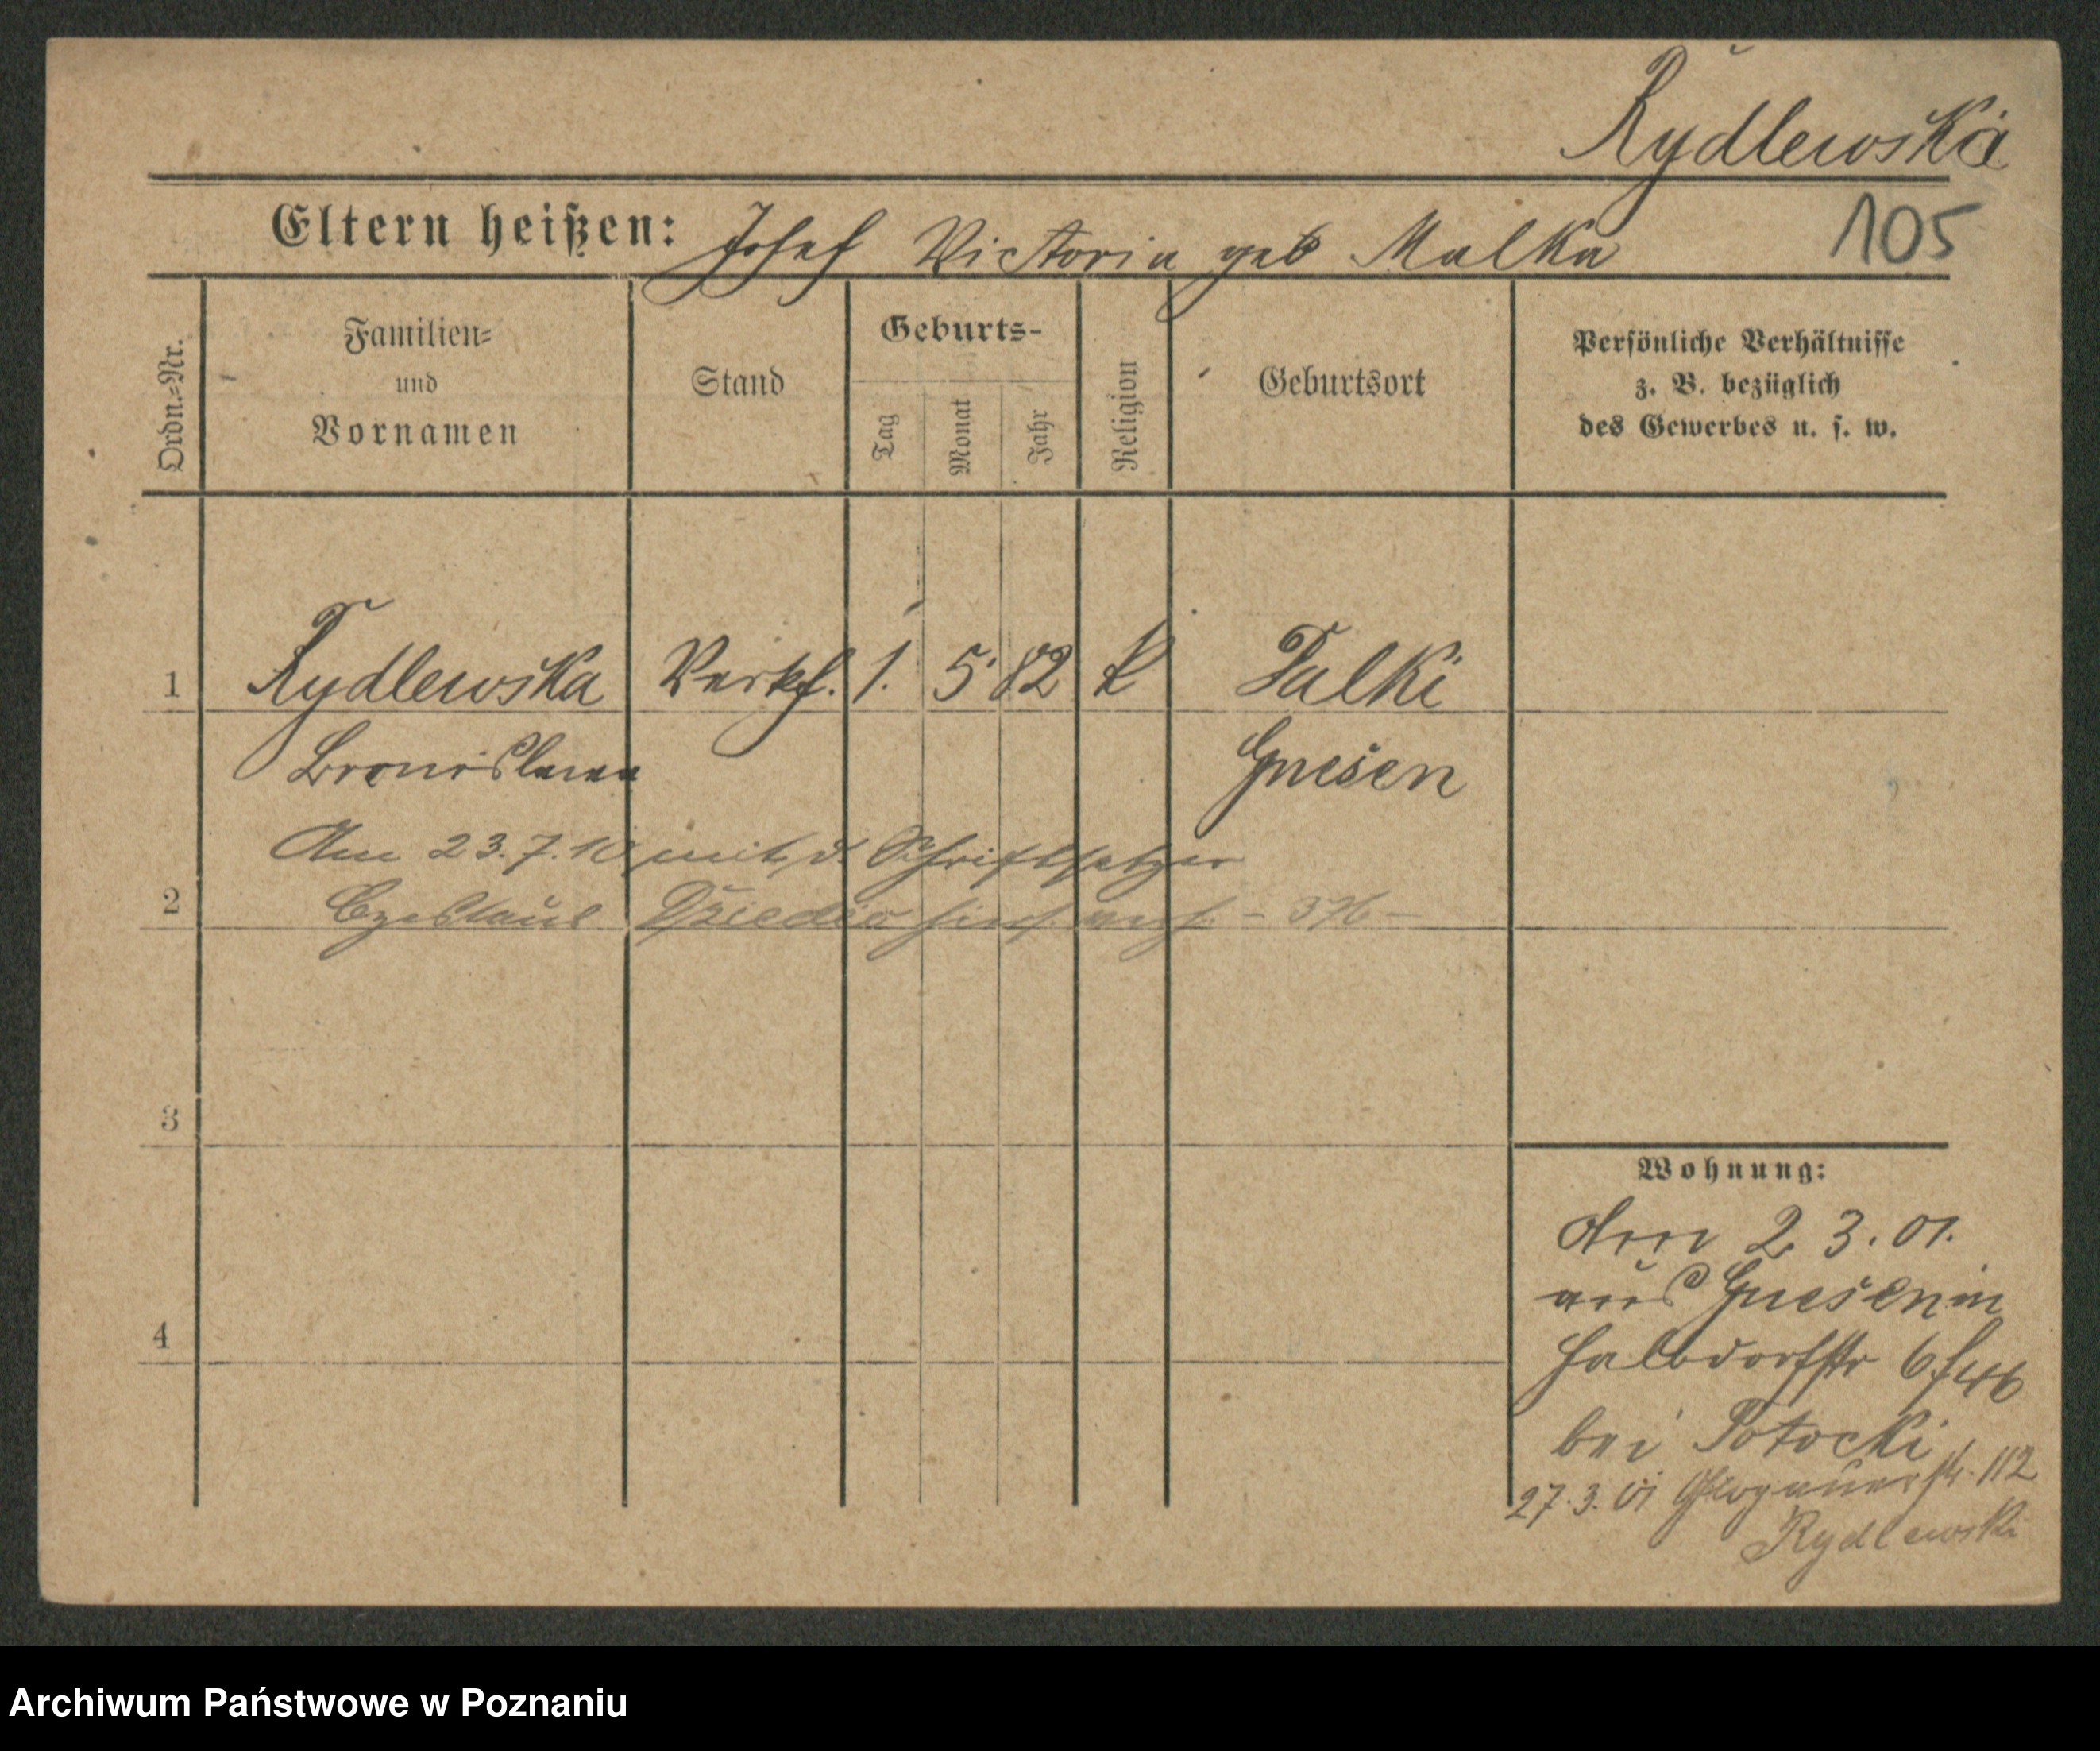 Rydlewska
Eltern heißen: Josef Victoria geb Malka
105
Ordn.=Nr.
Familien=
und
Vornamen
Stand
Geburts-
Tag
Monat
Jahr
Religion
Geburtsort
Persönliche Verhältnisse
z. B. bezüglich
des Gewerbes u. s. w.
1 Rydlewska Verkf. 1. 5. 82 k Palki
Bronislawa Gnesen
Am 23.7.10 mit d. Schriftsetzer
2 Czeslaus hier verh. - 376 -
3
4
Wohnung:
Am 2. 3. 01.
aus Gnesen in
Halbdorfstr 6
bei Potocki
27. 3. 01 Glogauerstr. 112
Rydlewski
Archiwum Państwowe w Poznaniu